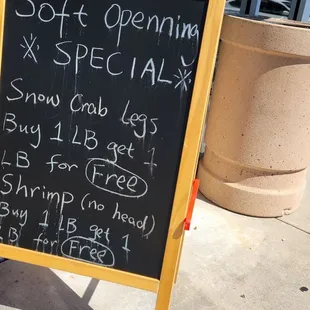 Soft Openning
SPECIAL
Snow Crab Legs
Buy 1 LB get 1
LB for Free
Shrimp (no head)
Buy 1 LB get 1
LB for Free